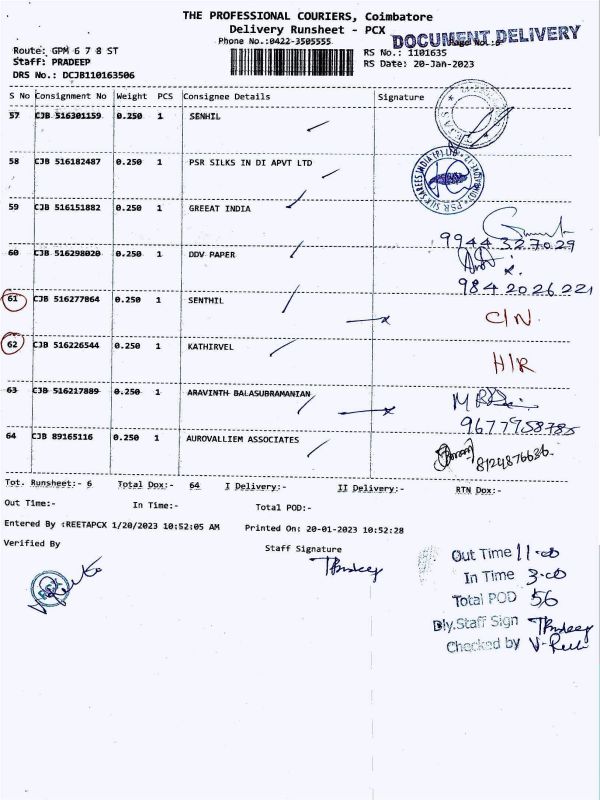 THE PROFESSIONAL COURIERS, Coimbatore
Delivery Runsheet - PCX
Phone No.:0422-3505555
DOCUMENT DELIVERY
Route: GPM 6 7 8 ST
RS No.: 1101635
Staff: PRADEEP
RS Date: 20-Jan-2023
DRS No.: DCJB110163506
S No Consignment No Weight PCS Consignee Details Signature
57 CJB 516301159 0.250 1 SENHIL
58 CJB 516182487 0.250 1 PSR SILKS IN DI APVT LTD
59 CJB 516151882 0.250 1 GREEAT INDIA
9944327029
60 CJB 516298020 0.250 1 DDV PAPER
9842026221
61 CJB 516277864 0.250 1 SENTHIL C/N.
62 CJB 516226544 0.250 1 KATHIRVEL H/R
63 CJB 516217889 0.250 1 ARAVINTH BALASUBRAMANIAN
9677958785
64 CJB 89165116 0.250 1 AUROVALLIEM ASSOCIATES
8124876636.
Tot. Runsheet:- 6 Total Dox:- 64 I Delivery:- II Delivery:- RTN Dox:-
Out Time:- In Time:- Total POD:-
Entered By :REETAPCX 1/20/2023 10:52:05 AM Printed On: 20-01-2023 10:52:28
Verified By Staff Signature
Out Time 11.00
In Time 3.00
Total POD 56
Dly.Staff Sign
Checked by